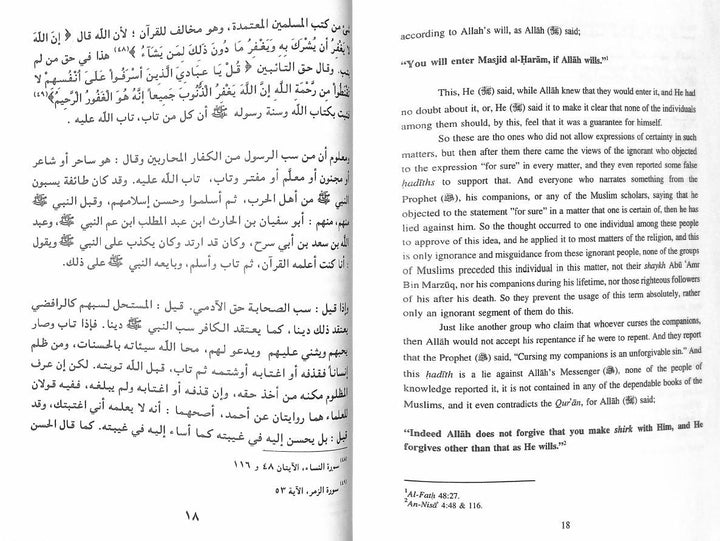 من كتب المسلمين المعتمدة، وهو مخالف للقرآن ؛ لأن الله قال ﴿ إِنَّ اللَّهَ
لَا يَغْفِرُ أَن يُشْرَكَ بِهِ وَيَغْفِرُ مَا دُونَ ذَلِكَ لِمَن يَشَآءُ ﴾(٤٨) هذا في حق من لم
يتب، وقال في حق التائبين ﴿ قُلْ يَا عِبَادِيَ الَّذِينَ أَسْرَفُوا عَلَىٰ أَنْفُسِهِمْ لَا
تَقْنَطُوا مِن رَّحْمَةِ اللَّهِ إِنَّ اللَّهَ يَغْفِرُ الذُّنُوبَ جَمِيعاً إِنَّهُ هُوَ الْغَفُورُ الرَّحِيمُ﴾(٤٩)
بكتاب الله وسنة رسوله ﷺ أن كل من تاب، تاب الله عليه .
ومعلوم أن من سب الرسول من الكفار المحاربين وقال : هو ساحر أو شاعر
أو مجنون أو معلَّم أو مفتر وتاب، تاب الله عليه. وقد كان طائفة يسبون
النبي ﷺ من أهل الحرب، ثم أسلموا وحسن إسلامهم، وقبل النبي ﷺ
منهم، منهم : أبو سفيان بن الحارث ابن عبد المطلب ابن عم النبي ﷺ، وعبد
الله بن سعد بن أبي سرح، وكان قد ارتد وكان يكذب على النبي ﷺ ويقول
: أنا كنت أعلمه القرآن، ثم تاب وأسلم، وبايعه النبي ﷺ على ذلك.
وإذا قيل : سب الصحابة حق لآدمي. قيل : المستحل لسبهم كالرافضي
يعتقد ذلك دينا، كما يعتقد الكافر سب النبي ﷺ دينا. فإذا تاب وصار
يحبهم ويثني عليهم ويدعو لهم، محا الله سيئاته بالحسنات، ومن ظلم
إنساناً فقذفه أو اغتابه أوشتمه ثم تاب، قبل الله توبته. لكن إن عرف
المظلوم مكنه من أخذ حقه، وإن قذفه أو اغتابه ولم يبلغه، ففيه قولان
للعلماء هما روايتان عن أحمد، أصحهما : أنه لا يعلمه أني اغتبتك، وقد
قيل : بل يحسن إليه في غيبته كما أساء إليه في غيبته. كما قال الحسن
(٤٨) سورة النساء، الآيتان ٤٨ و ١١٦
(٤٩) سورة الزمر، الآية ٥٣
١٨
according to Allah's will, as Allāh (ﷻ) said;
"You will enter Masjid al-Ḥarām, if Allāh wills."1
This, He (ﷻ) said, while Allāh knew that they would enter it, and He had
no doubt about it, or, He (ﷻ) said it to make it clear that none of the individuals
among them should, by this, feel that it was a guarantee for himself.
So these are tho ones who did not allow expressions of certainty in such
matters, but then after them there came the views of the ignorant who objected
to the expression "for sure" in every matter, and they even reported some false
ḥadīths to support that. And everyone who narrates something from the
Prophet (ﷺ), his companions, or any of the Muslim scholars, saying that he
objected to the statement "for sure" in a matter that one is certain of, then he has
lied against him. So the thought occurred to one individual among these people
to approve of this idea, and he applied it to most matters of the religion, and this
is only ignorance and misguidance from these ignorant people, none of the groups
of Muslims preceded this individual in this matter, not their shaykh Abū ʿAmr
Bin Marzūq, nor his companions during his lifetime, nor those righteous followers
of his after his death. So they prevent the usage of this term absolutely, rather
only an ignorant segment of them do this.
Just like another group who claim that whoever curses the companions,
then Allāh would not accept his repentance if he were to repent. And they report
that the Prophet (ﷺ) said, "Cursing my companions is an unforgivable sin." And
this ḥadīth is a lie against Allāh's Messenger (ﷺ), none of the people of
knowledge reported it, it is not contained in any of the dependable books of the
Muslims, and it even contradicts the Qur'ān, for Allāh (ﷻ) said;
"Indeed Allāh does not forgive that you make shirk with Him, and He
forgives other than that as He wills."2
1Al-Fatḥ 48:27.
2An-Nisā' 4:48 & 116.
18